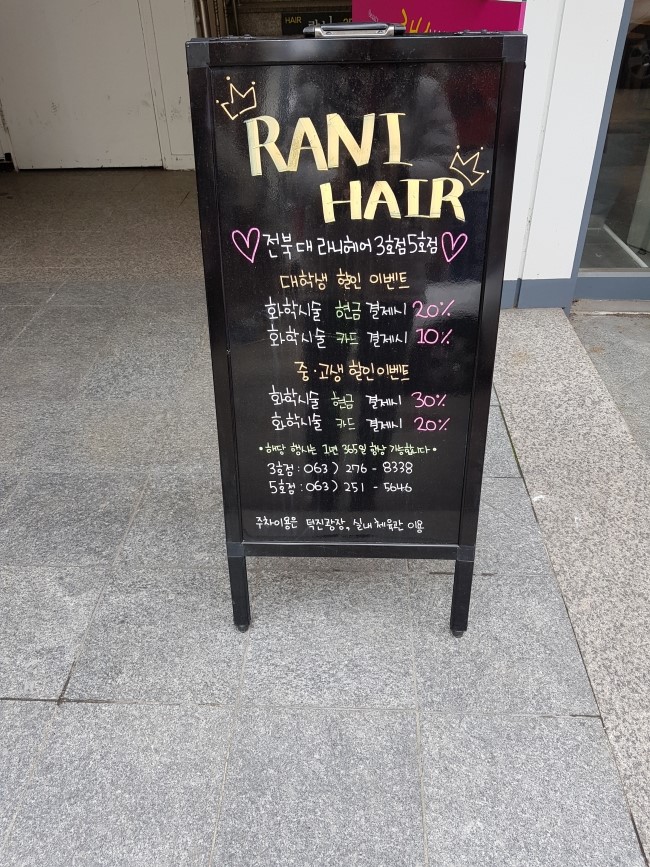 HAIR
RANI
HAIR
전북대 라니헤어 3호점 5호점
대학생 할인 이벤트
화학시술 현금 결제시 20%
화학시술 카드 결제시 10%
중·고생 할인이벤트
화학시술 현금 결제시 30%
화학시술 카드 결제시 20%
• 해당 행사는 1년 365일 항상 가능합니다 •
3호점 : 063) 276 - 8338
5호점 : 063) 251 - 5646
주차이용은 덕진광장, 실내체육관 이용